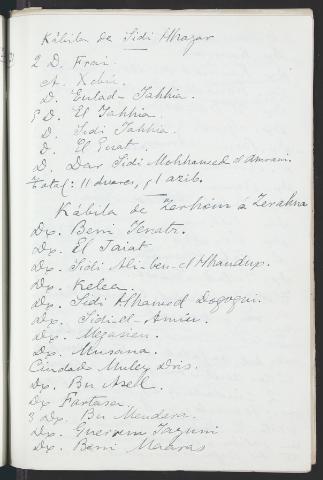 Kábila de Sidi Alhazar
2 D. Frai.
A. Xebia.
D. Eulad-Jahhia.
5 D. El Jahhia.
D. Sidi Jahhia.
D. El Guat.
D. Dar Sidi Mohhamed d'Amrani.
Total: 11 duares, y 1 azib.
Kábila de Zerhóm ó Zerahna
Dx. Beni Jenatz.
Dx. El Taiat
Dx. Sidi Ali-ben-el-Hhandux.
Dx. Kelea.
Dx. Sidi Alhamed Dogogui.
Dx. Sidi-el-Amien.
Dx. Megasien.
Dx. Musana.
Ciudad Muley Dris.
Dx. Bu Asell.
Dx Fartasa.
3 Dx. Bu Mendera.
Dx. Guerrem Jaguni
Dx. Beni Maaras